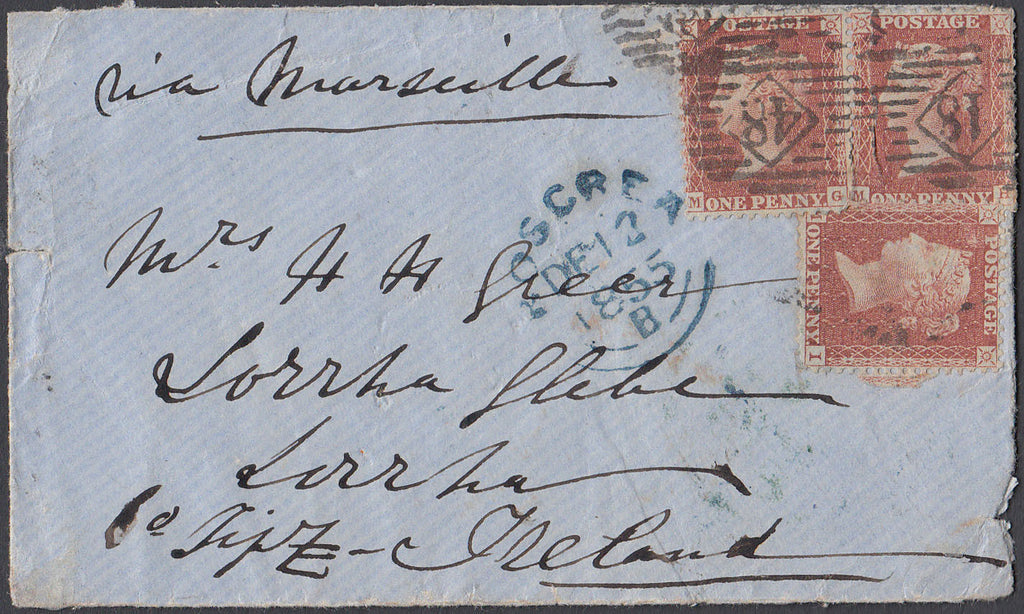 via Marseille
POSTAGE
POSTAGE
48
48
M ONE PENNY G
M ONE PENNY
POSTAGE
ONE PENNY
I
OSCREA
DE 12
1855
B
Mrs H H Greer
Lorrha Glebe
Lorrha
Co Tip Ireland